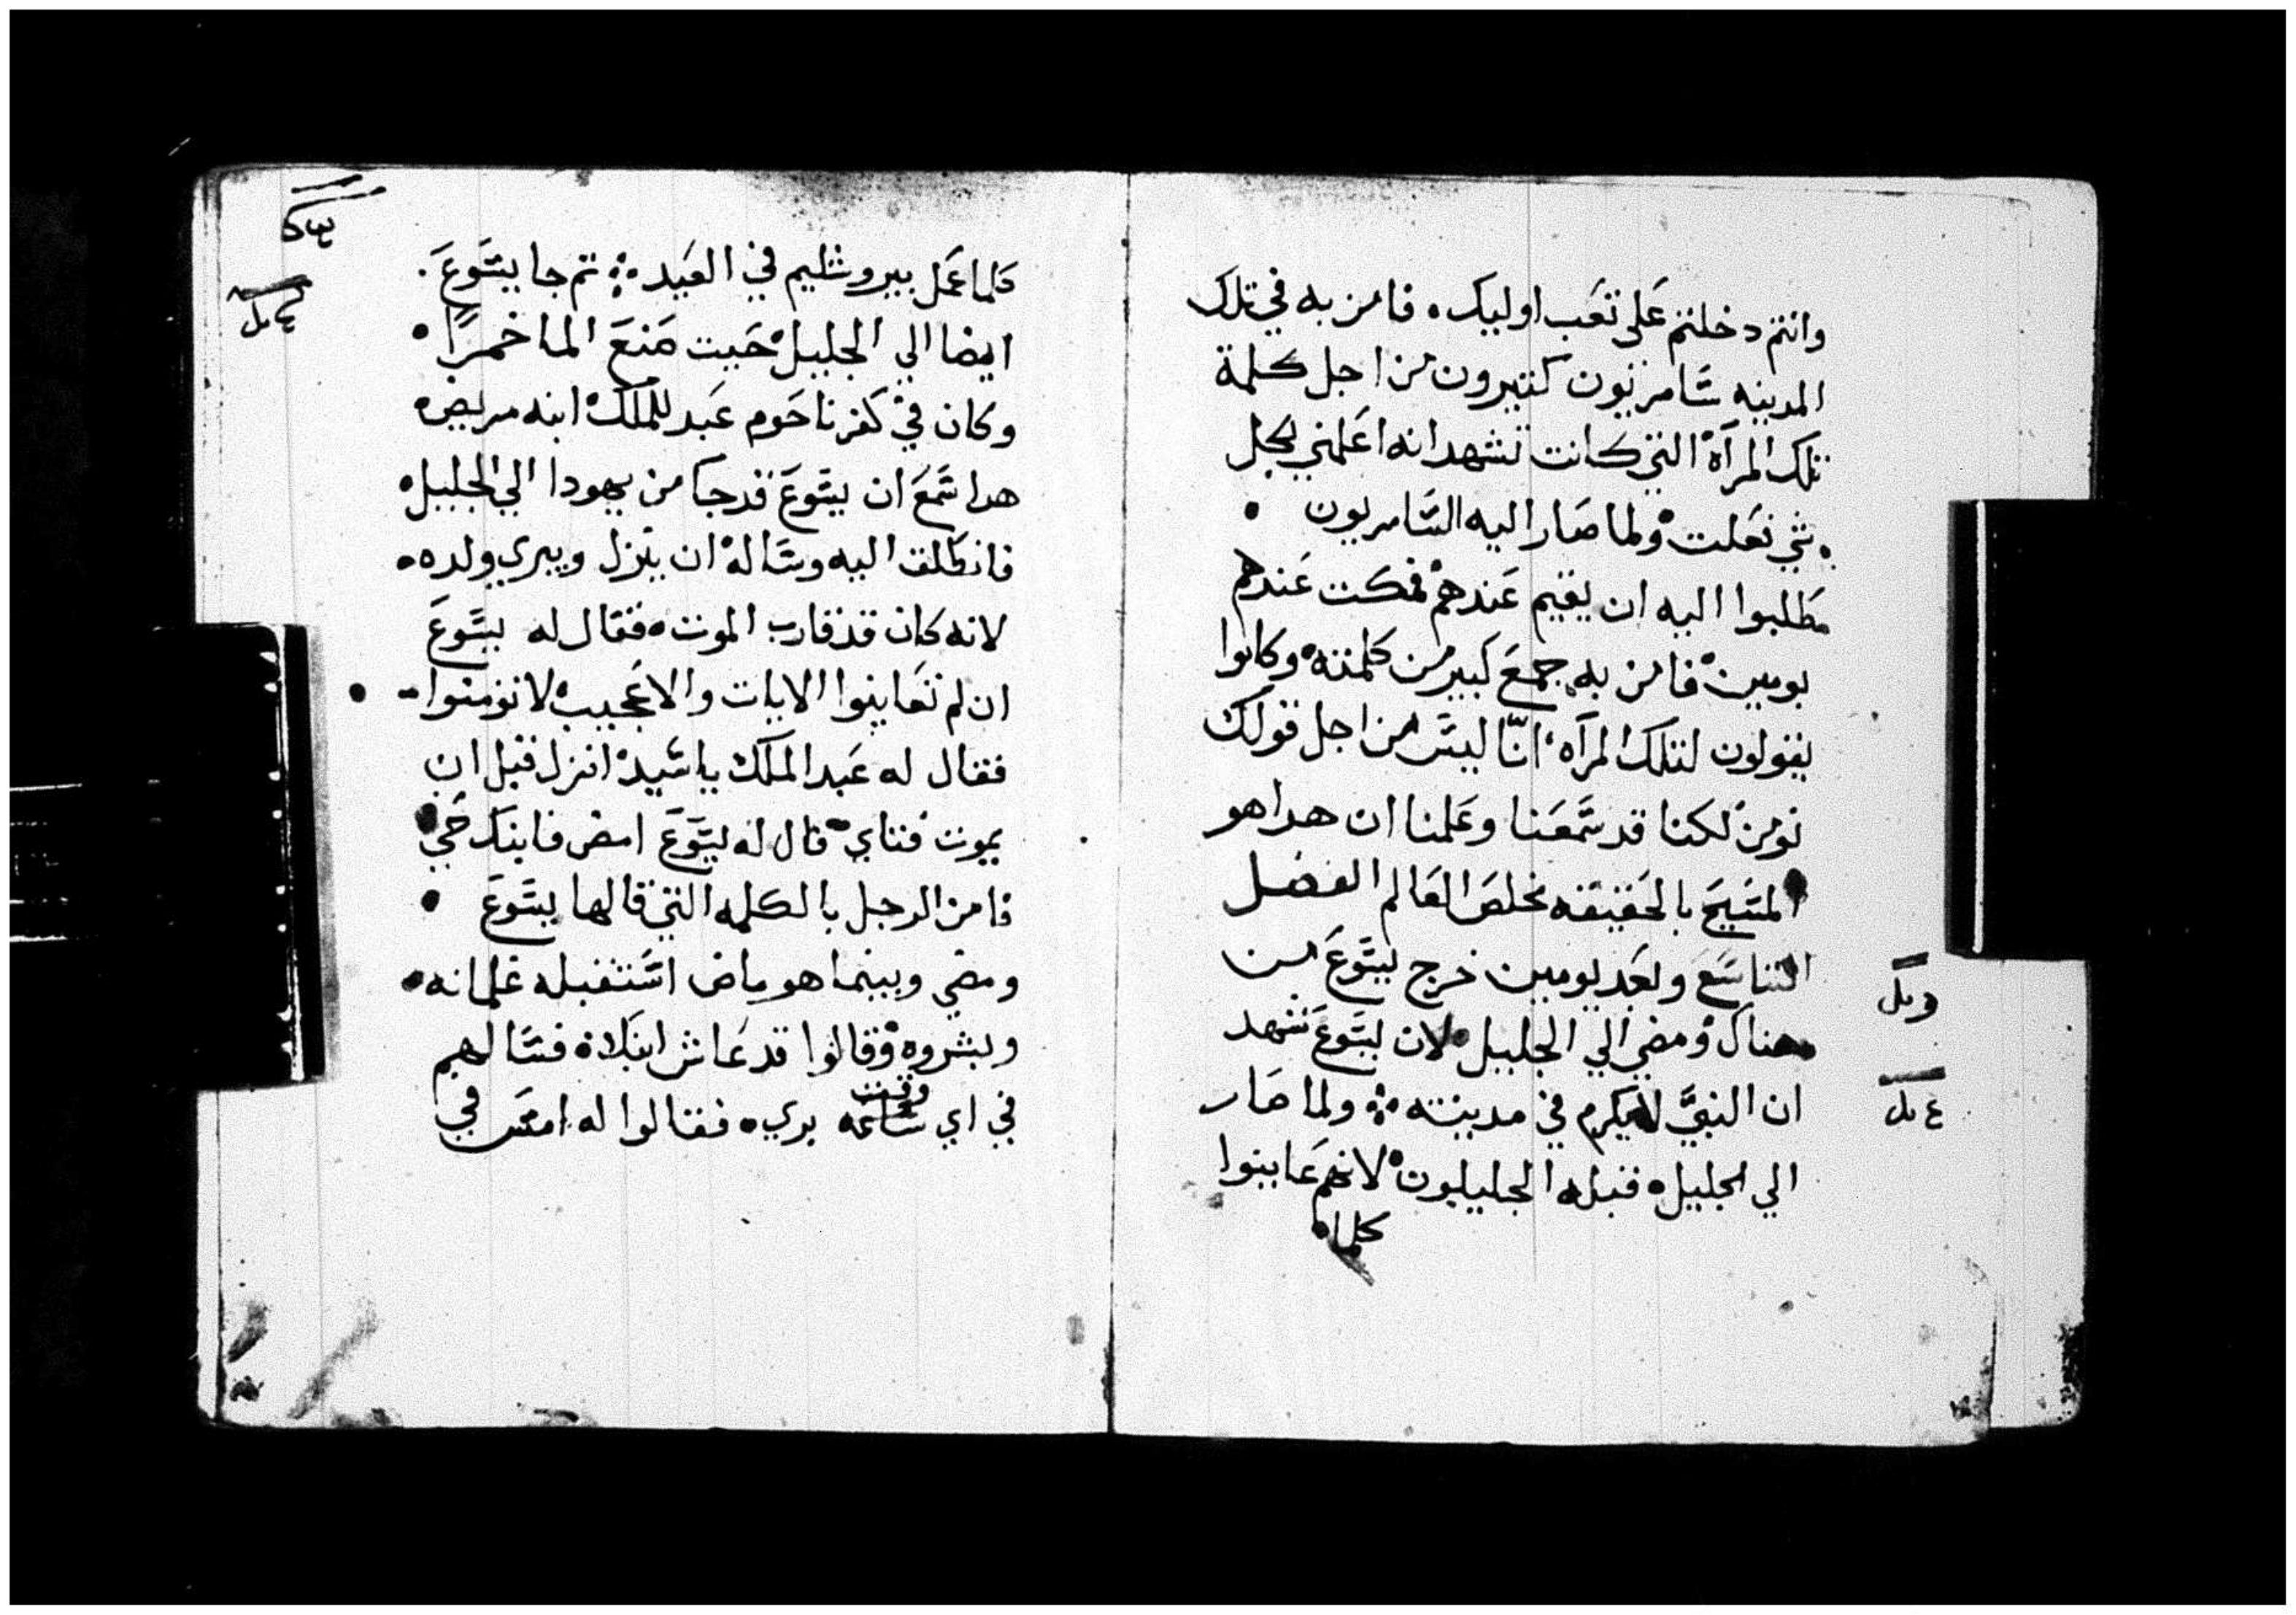 وانتم دخلتم على تعب اوليك. فامن به في تلك
المدينه سامريون كتيرون من اجل كلمة
تلك المرآة التي كانت تشهد انه اعلمني بكل
شي فعلت ولما صار اليه السامريون
طلبوا اليه ان يقيم عندهم فمكت عندهم
يومين فامن به جمع كبير من كلمته وكانوا
يقولون لتلك المرآه انّا ليس من اجل قولك
نومن لكنا قد سمعنا وعلمنا ان هدا هو
المسيح بالحقيقه مخلص العالم الفصل
التاسع وبعد يومين خرج يسوع من
هناك ومضي الي الجليل لان يسوع شهد
ان النبي لا يكرم في مدينته ولما صار
الي الجليل فقبله الجليليون لانهم عاينوا
كلما
كلما عمل بيروشليم في العيد تم جا يسوع.
ايضا الي الجليل حيت صنع الما خمرًا
وكان في كفرناحوم عبد للملك ابنه مريض
هدا سمع ان يسوع قد جا من يهودا الي الجليل
فانطلق اليه وساله ان ينزل ويبري ولده
لانه كان قد قارب الموت فقال له يسوع
ان لم تعاينوا الايات والاعجيب لا تومنوا
فقال له عبد الملك يا سيد انزل قبل ان
يموت فتاي قال له يسوع امض فابنك حي
فامن الرجل بالكلمه التي قالها يسوع
ومضي وبينما هو ماض استقبله غلمانه
وبشروه وقالوا قد عاش ابنك فسالهم
وقت
في اي ساعه بري فقالوا له امس في